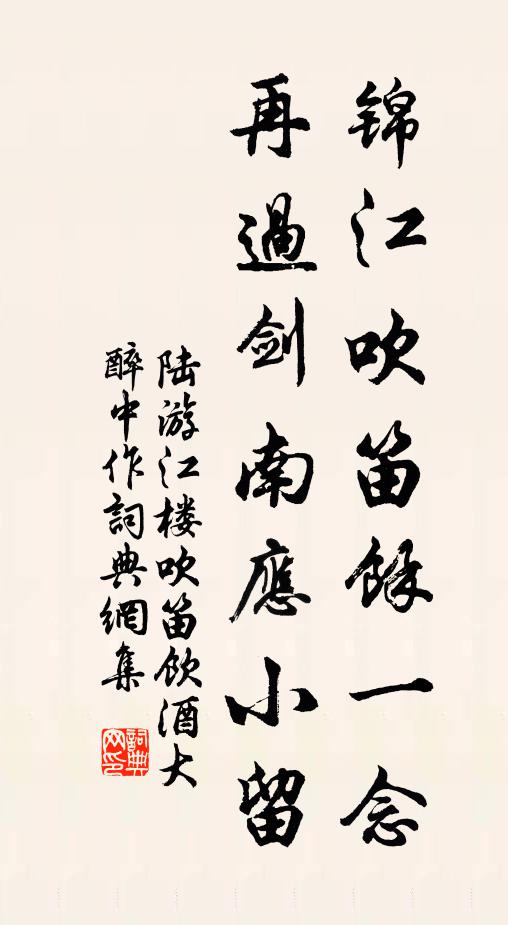 錦江吹笛餘一念
再過劍南應小留
陆游江楼吹笛飲酒大
醉中作詞典網集
詞典網印